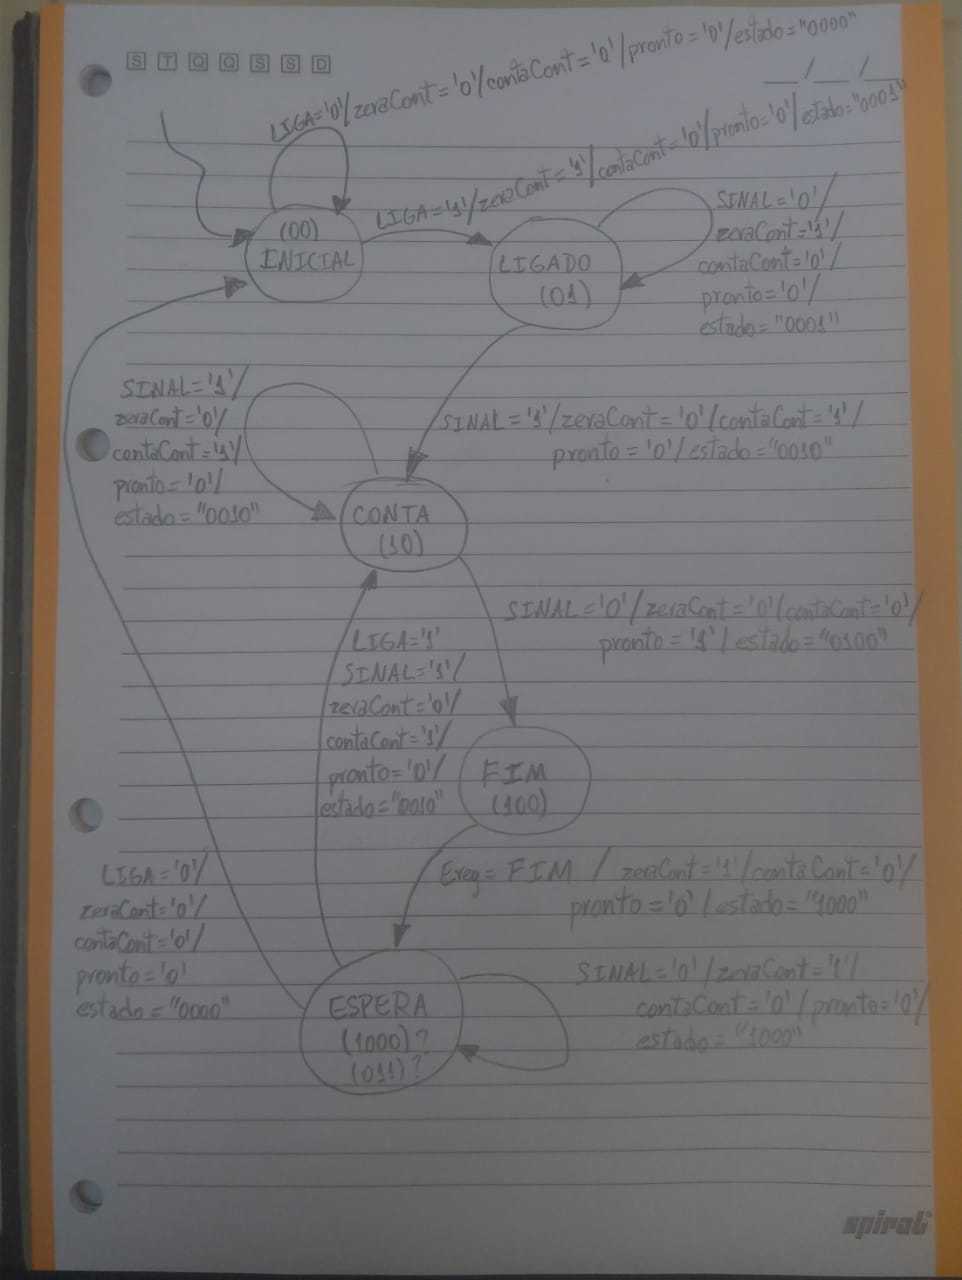 S T Q Q S S D
LIGA='0'/zeraCont='0'/contaCont='0'/pronto='0'/estado="0000"
__/__/__
LIGA='1'/zeraCont='1'/contaCont='0'/pronto='0'/estado="0001"
(00)
INICIAL
LIGADO
(01)
SINAL='0'/
zeraCont='1'/
contaCont='0'/
pronto='0'/
estado="0001"
SINAL='1'/
zeraCont='0'/
contaCont='1'/
pronto='0'/
estado="0010"
SINAL='1'/zeraCont='0'/contaCont='1'/
pronto='0'/estado="0010"
CONTA
(10)
SINAL='0'/zeraCont='0'/contaCont='0'/
pronto='1'/estado="0100"
LIGA='1'
SINAL='1'/
zeraCont='0'/
contaCont='1'/
pronto='0'/
estado="0010"
FIM
(100)
Ereg=FIM / zeraCont='1'/contaCont='0'/
pronto='0'/estado="1000"
LIGA='0'/
zeraCont='0'/
contaCont='0'/
pronto='0'
estado="0000"
ESPERA
(1000)?
(011)?
SINAL='0'/zeraCont='1'/
contaCont='0'/pronto='0'/
estado="1000"
spiral